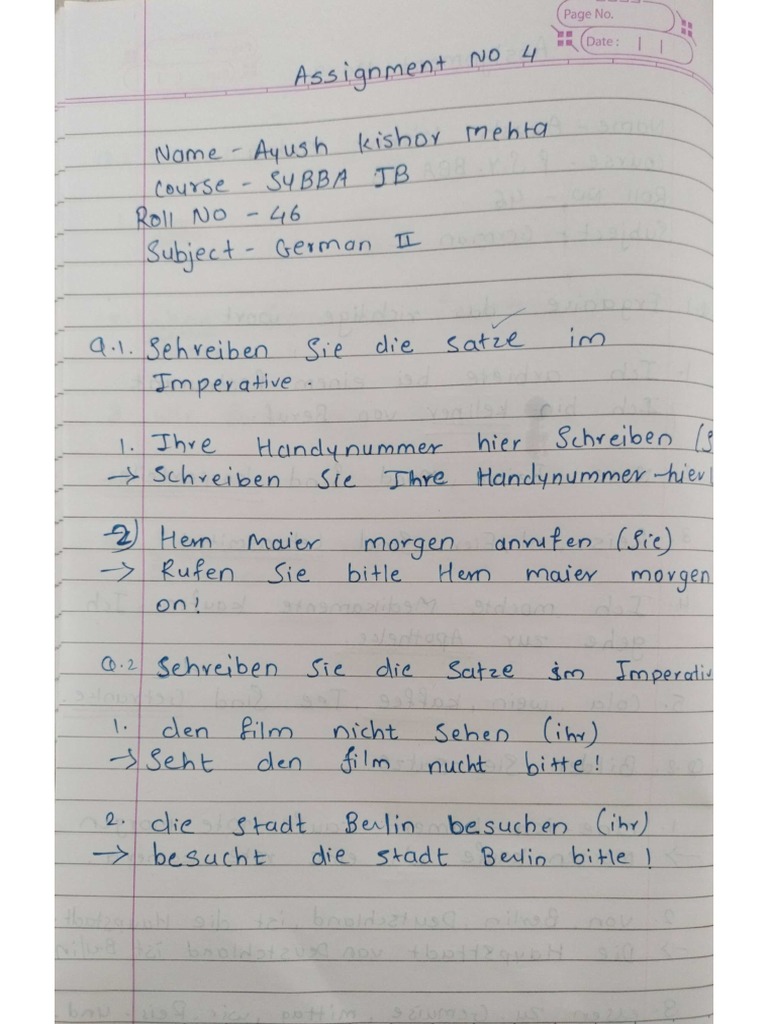 Page No.
Date :
Assignment No 4
Name - Ayush Kishor Mehta
Course - SYBBA IB
Roll No - 46
Subject - German II
Q.1. Schreiben Sie die Satze im
Imperative.
1. Ihre Handynummer hier Schreiben (S
→ Schreiben Sie Ihre Handynummer hier!
2) Herr Maier morgen anrufen (Sie)
→ Rufen Sie bitle Herr maier morgen
on!
Q.2 Schreiben Sie die Satze im Imperativ
1. den film nicht Sehen (ihr)
→ Seht den film nucht bitte!
2. die stadt Berlin besuchen (ihr)
→ besucht die stadt Berlin bitle!